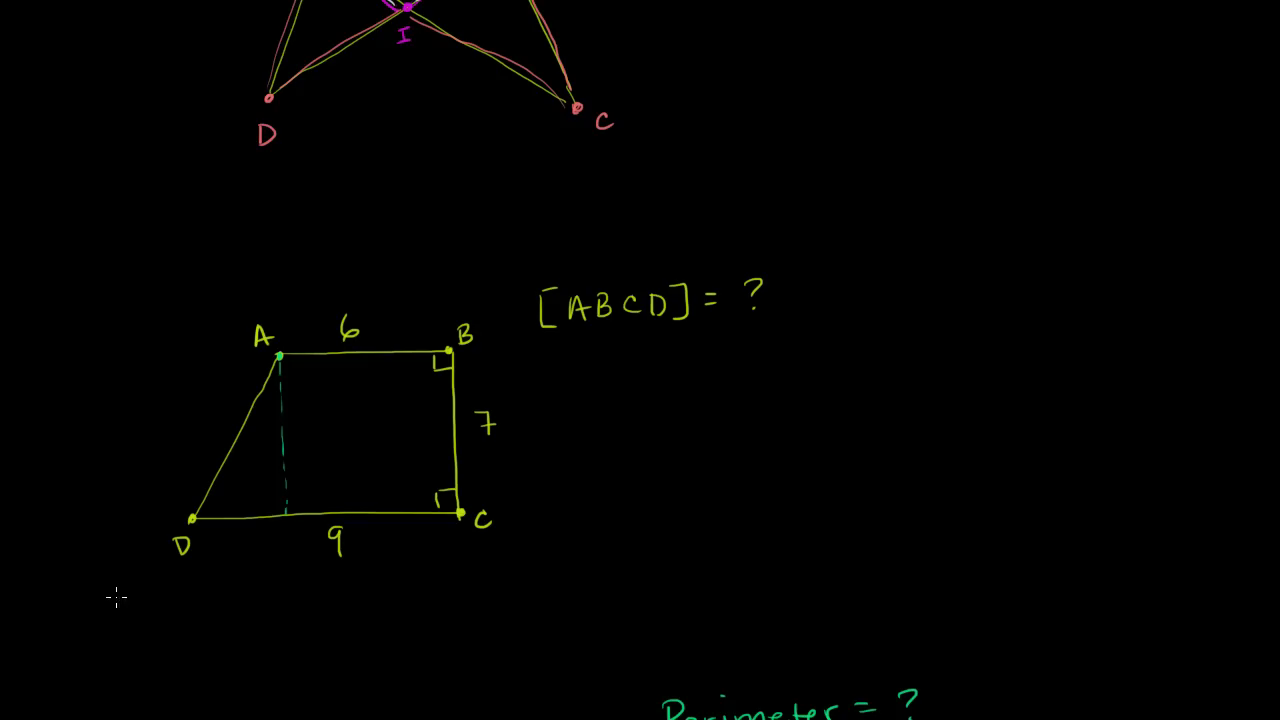 I
D
C
[ABCD] = ?
A
6
B
7
D
9
C
Perimeter = ?